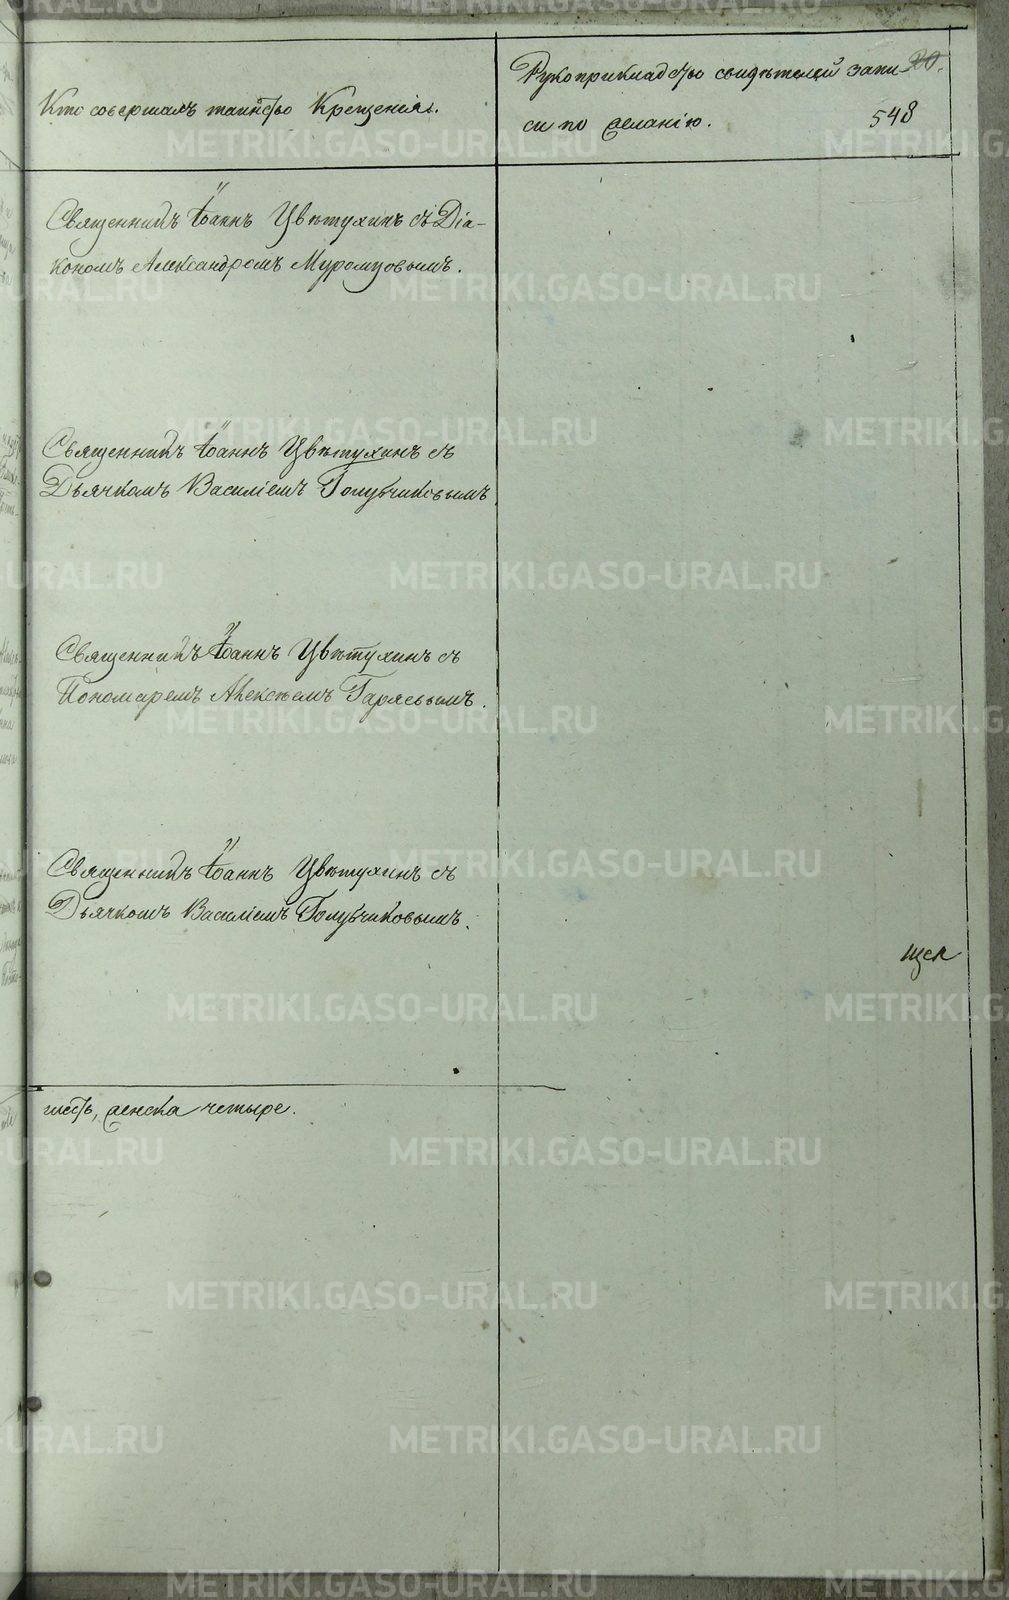 Кто совершалъ таинство Крещенія.
Рукоприкладство свидѣтелей запи-
20.
си по желанію.
548
Священникъ Іоаннъ Цвѣтухинъ съ Діа-
кономъ Александромъ Муромцовымъ.
Священникъ Іоаннъ Цвѣтухинъ съ
Дьячкомъ Василіемъ Голубчиковымъ.
Священникъ Іоаннъ Цвѣтухинъ съ
Пономаремъ Алексѣемъ
Священникъ Іоаннъ Цвѣтухинъ съ
Дьячкомъ Василіемъ Голубчиковымъ.
шесть, женска четыре.
METRIKI.GASO-URAL.RU